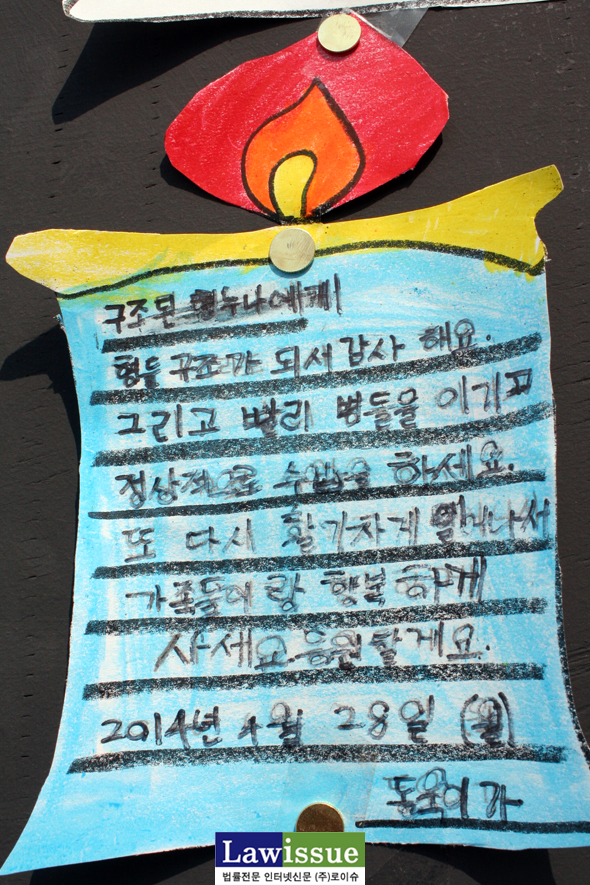 구조된 형누나에게
형들 구조가 되서 감사 해요.
그리고 빨리 병들을 이기고
정상적으로 수업을 하세요.
또 다시 활기차게 일어나서
가족들이랑 행복하게
사세요. 응원할게요.
2014년 4월 28일 (월)
동욱이가
Lawissue
법률전문 인터넷신문 (주)로이슈